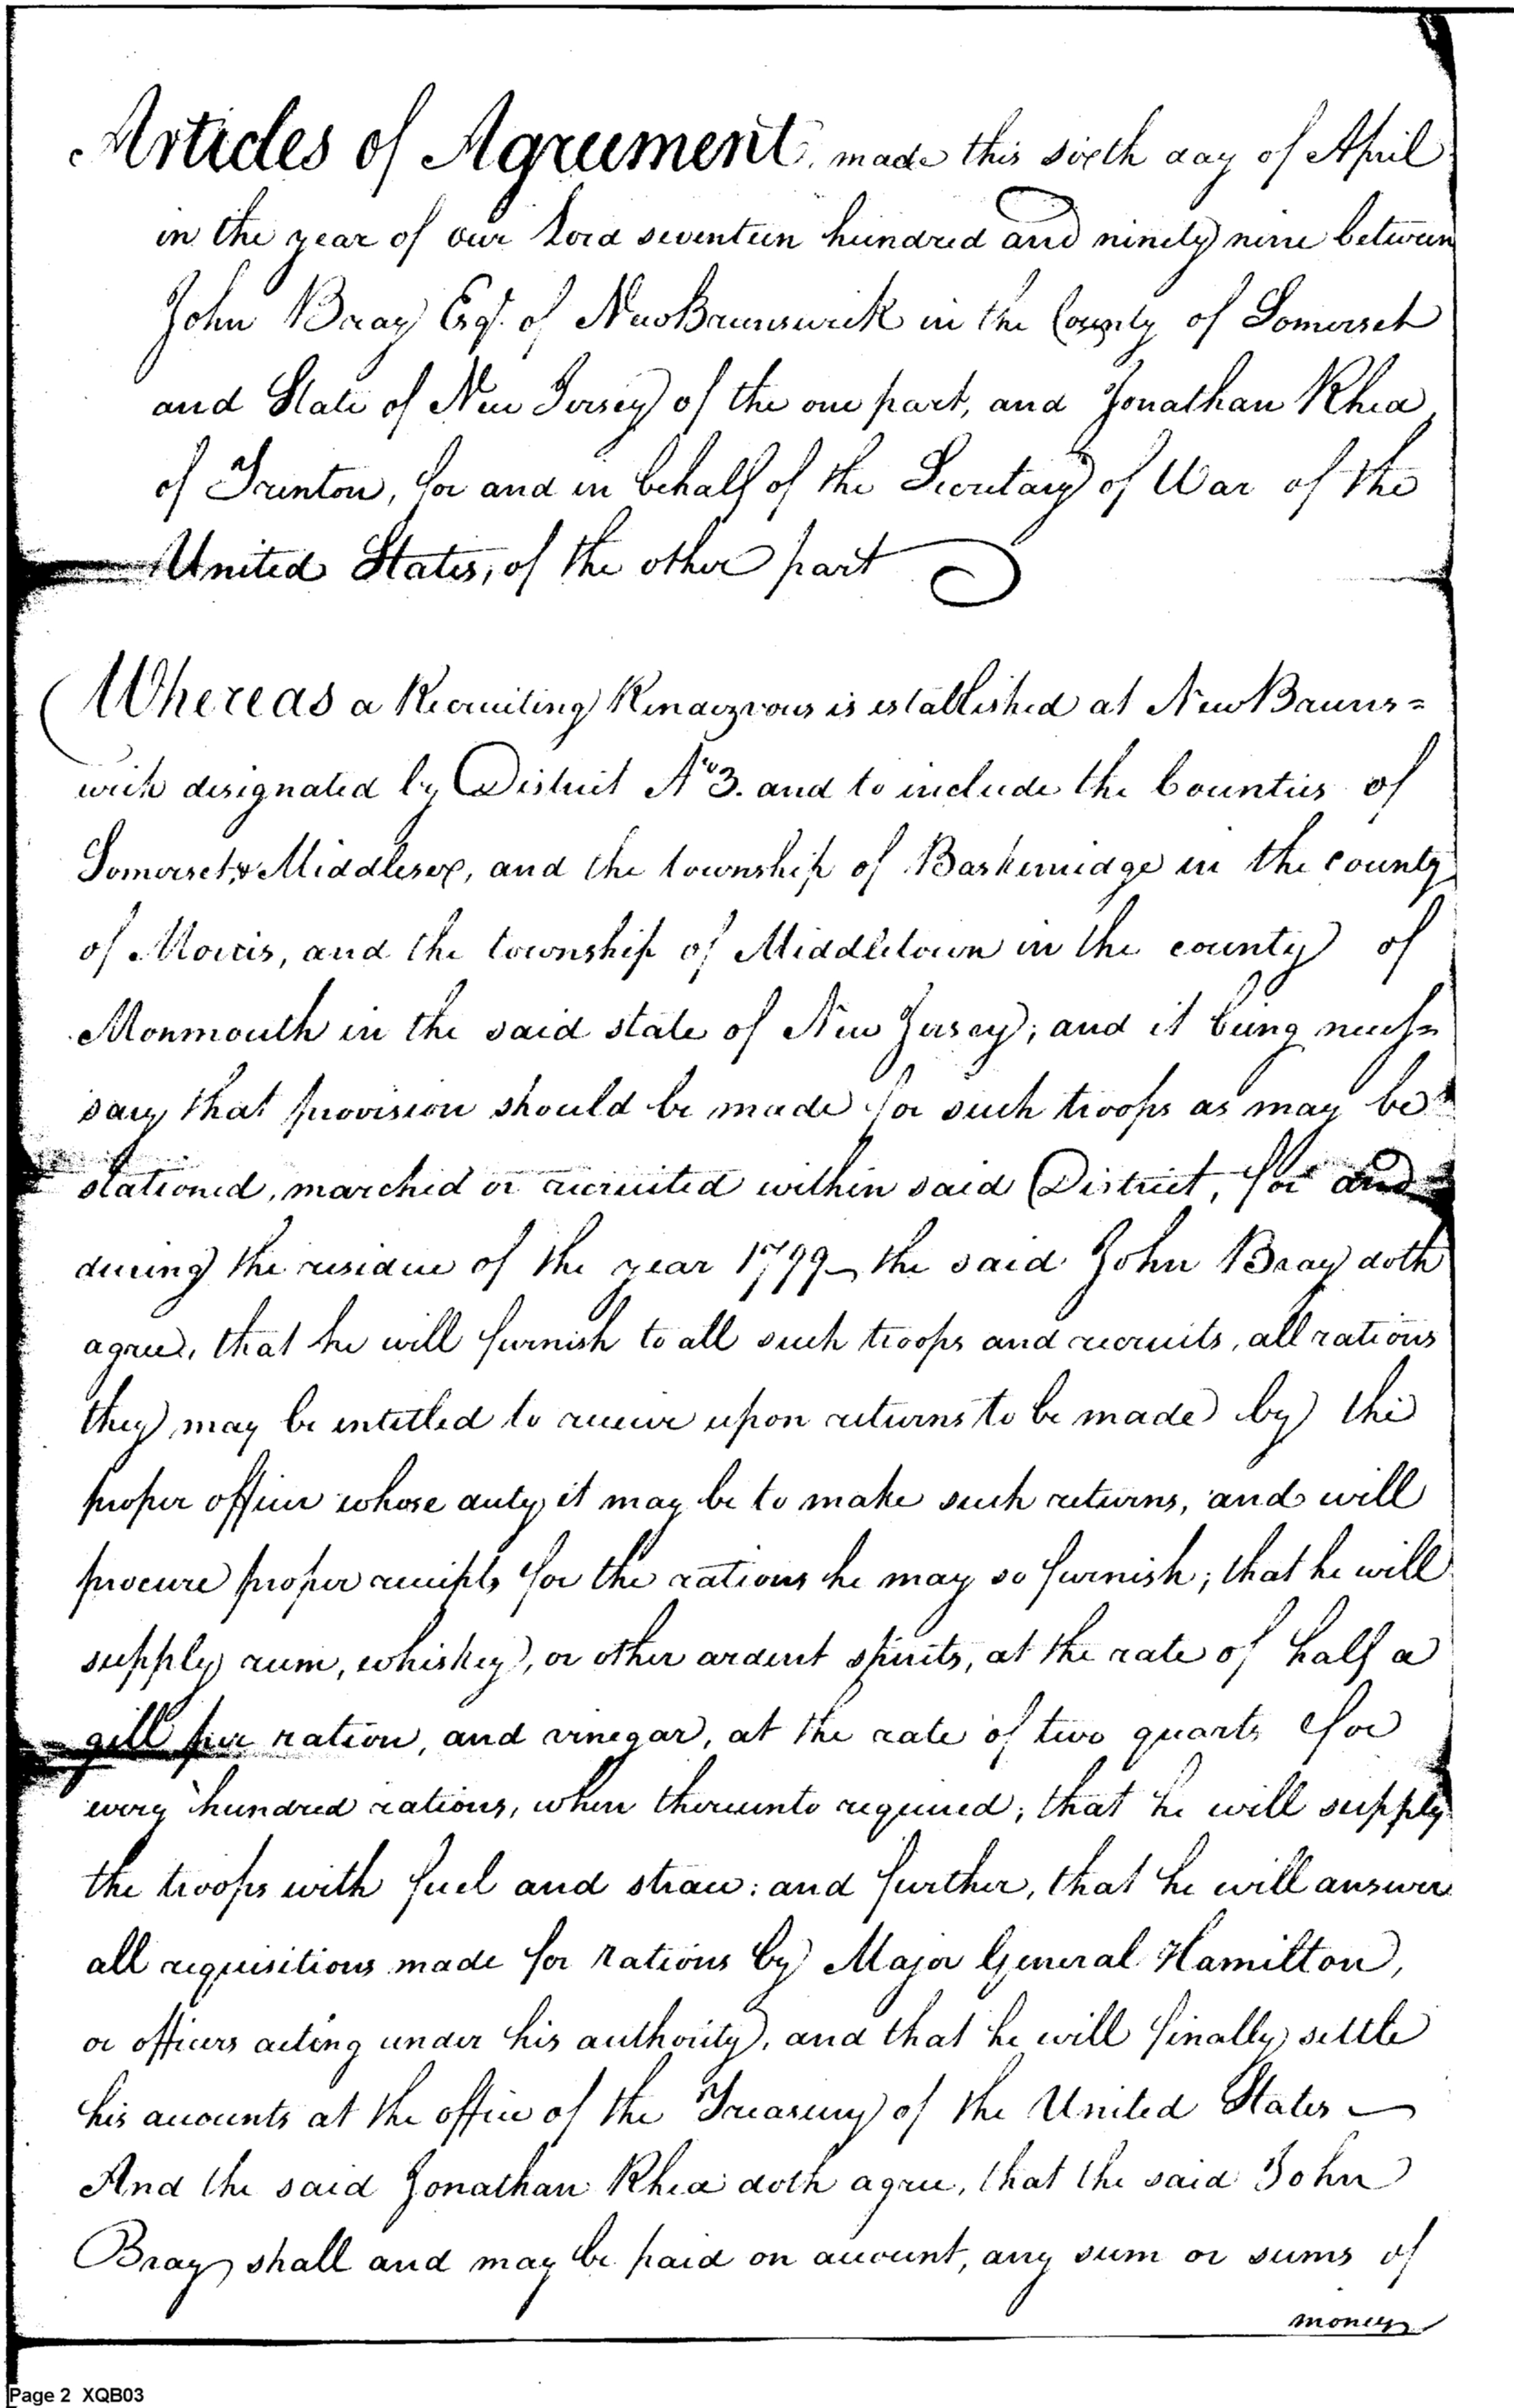 Articles of Agreement, made this sixth day of April
in the year of our Lord seventeen hundred and ninety nine between
John Bray Esqr. of New Brunswick in the County of Somerset
and State of New Jersey of the one part, and Jonathan Rhea
of Trenton, for and in behalf of the Secretary of War of the
United States, of the other part
Whereas a Recruiting Rendezvous is established at New Bruns=
wick designated by District No 3. and to include the Counties of
Somerset & Middlesex, and the township of Baskenridge in the county
of Morris, and the township of Middletown in the county of
Monmouth in the said state of New Jersey; and it being neces=
sary that provision should be made for such troops as may be
stationed, marched or recruited within said District, for and
during the residue of the year 1799 the said John Bray doth
agree, that he will furnish to all such troops and recruits, all rations
they may be entitled to receive upon returns to be made by the
proper officer whose duty it may be to make such returns, and will
procure proper receipts for the rations he may so furnish; that he will
supply rum, whiskey, or other ardent spirits, at the rate of half a
gill per ration, and vinegar, at the rate of two quarts for
every hundred rations, when thereunto required; that he will supply
the troops with fuel and straw: and further, that he will answer
all requisitions made for rations by Major General Hamilton,
or officers acting under his authority, and that he will finally settle
his accounts at the office of the Treasury of the United States —
And the said Jonathan Rhea doth agree, that the said John
Bray shall and may be paid on account, any sum or sums of
money
Page 2 XQB03